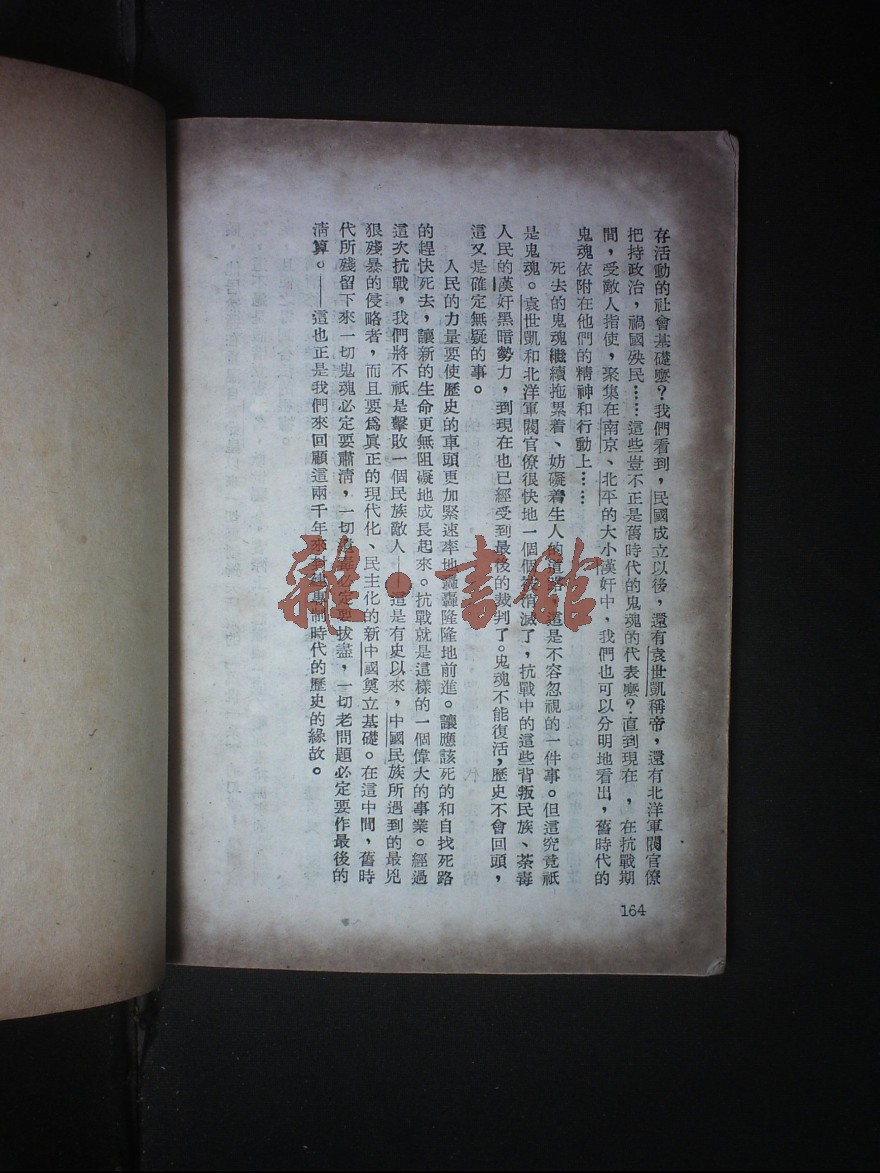 存活動的社會基礎麽？我們看到，民國成立以後，還有袁世凱稱帝，還有北洋軍閥官僚
把持政治，禍國殃民……這些豈不正是舊時代的鬼魂的代表麽？直到現在，在抗戰期
間，受敵人指使，聚集在南京、北平的大小漢奸中，我們也可以分明地看出，舊時代的
鬼魂依附在他們的精神和行動上……
死去的鬼魂繼續拖累着、妨礙着生人的道路，這是不容忽視的一件事。但這究竟祇
是鬼魂。袁世凱和北洋軍閥官僚很快地一個個被消滅了，抗戰中的這些背叛民族、荼毒
人民的漢奸黑暗勢力，到現在也已經受到最後的裁判了。鬼魂不能復活，歷史不會回頭，
這又是確定無疑的事。
人民的力量要使歷史的車頭更加緊速率地轟轟隆隆地前進。讓應該死的和自找死路
的趕快死去，讓新的生命更無阻礙地成長起來。抗戰就是這樣的一個偉大的事業。經過
這次抗戰，我們將不祇是擊敗一個民族敵人——這是有史以來，中國民族所遇到的最兇
狠殘暴的侵略者，而且要爲眞正的現代化、民主化的新中國奠立基礎。在這中間，舊時
代所殘留下來一切鬼魂必定要肅清，一切必定要拔盡，一切老問題必定要作最後的
淸算。——這也正是我們來回顧這兩千年來封建專制時代的歷史的緣故。
164
雜·書館